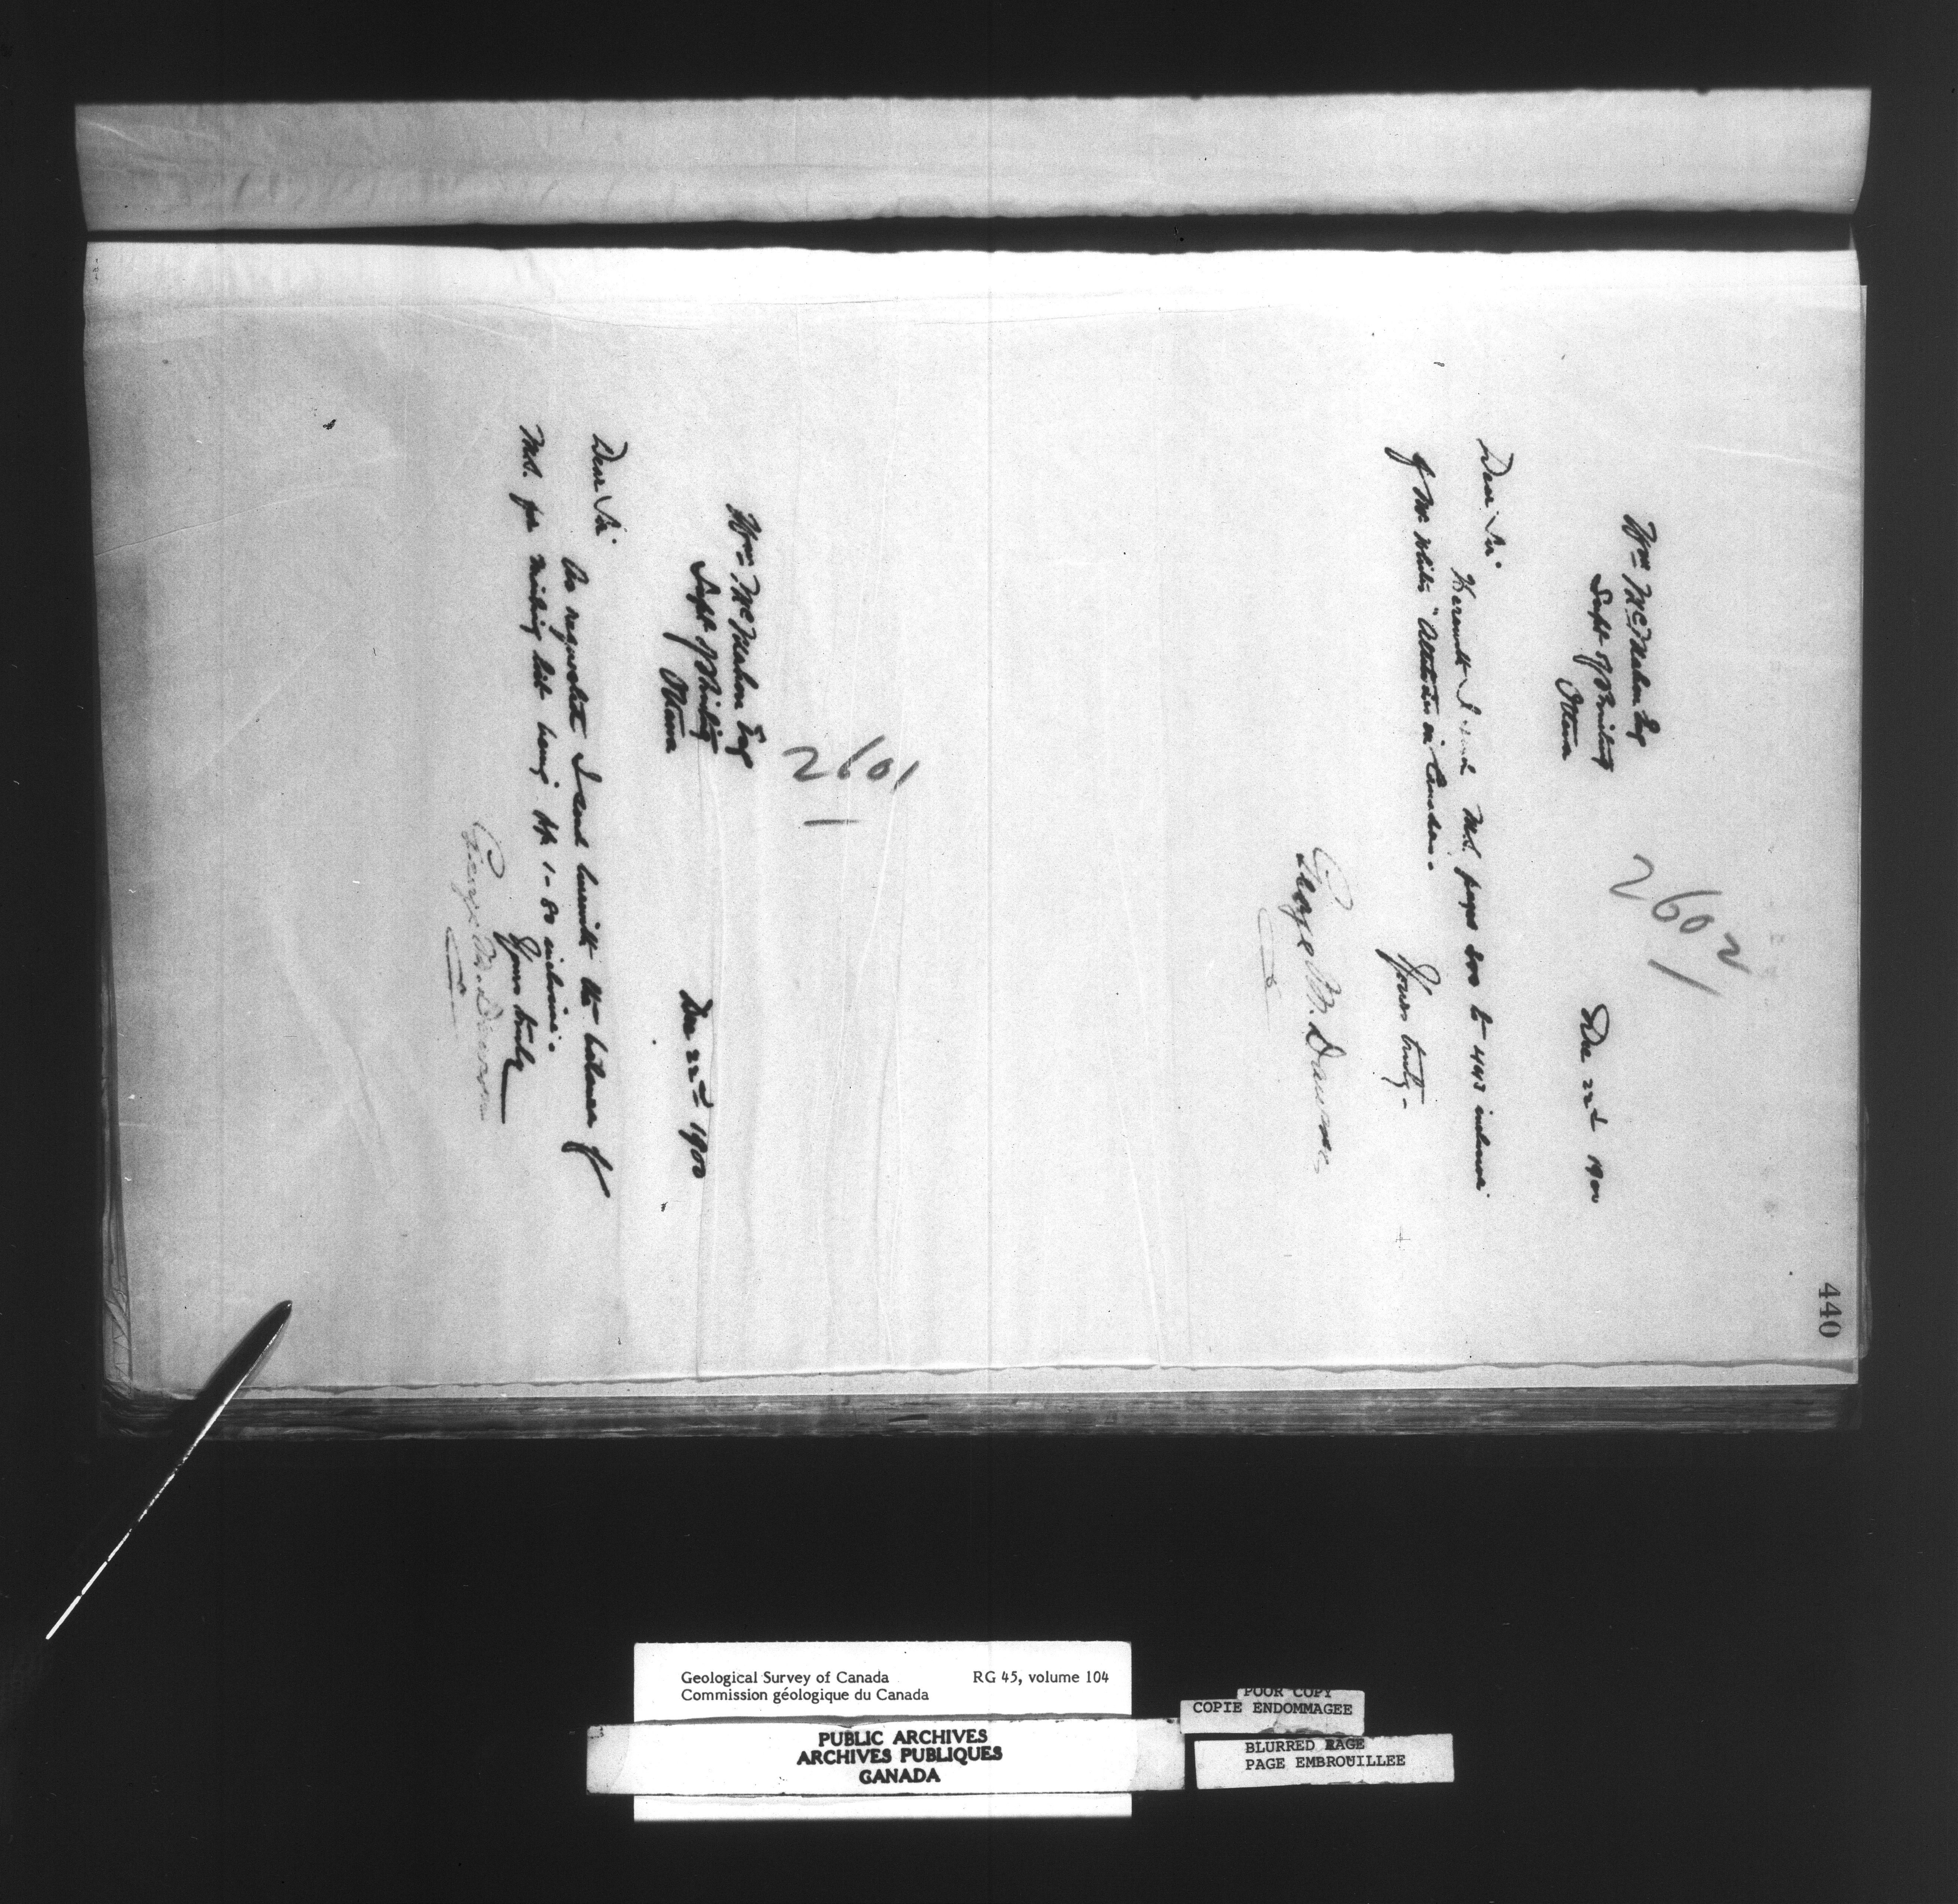 440
2602
Dec 22nd 1900
Wm McMahon Esq
Supt of Printing
Ottawa
Dear Sir
Herewith I send M.S. pages 200 to 443 inclusive
of Mr White's "Altitudes in Canada".
Yours truly
George M. Dawson
2601
Dec 22nd 1900
Wm McMahon Esq
Supt of Printing
Ottawa
Dear Sir
As requested I send herewith the balance of
M.S. for mailing list being pp 1-80 inclusive.
Yours truly
George M. Dawson
Geological Survey of Canada RG 45, volume 104
Commission géologique du Canada
PUBLIC ARCHIVES
ARCHIVES PUBLIQUES
CANADA
POOR COPY
COPIE ENDOMMAGEE
BLURRED PAGE
PAGE EMBROUILLEE